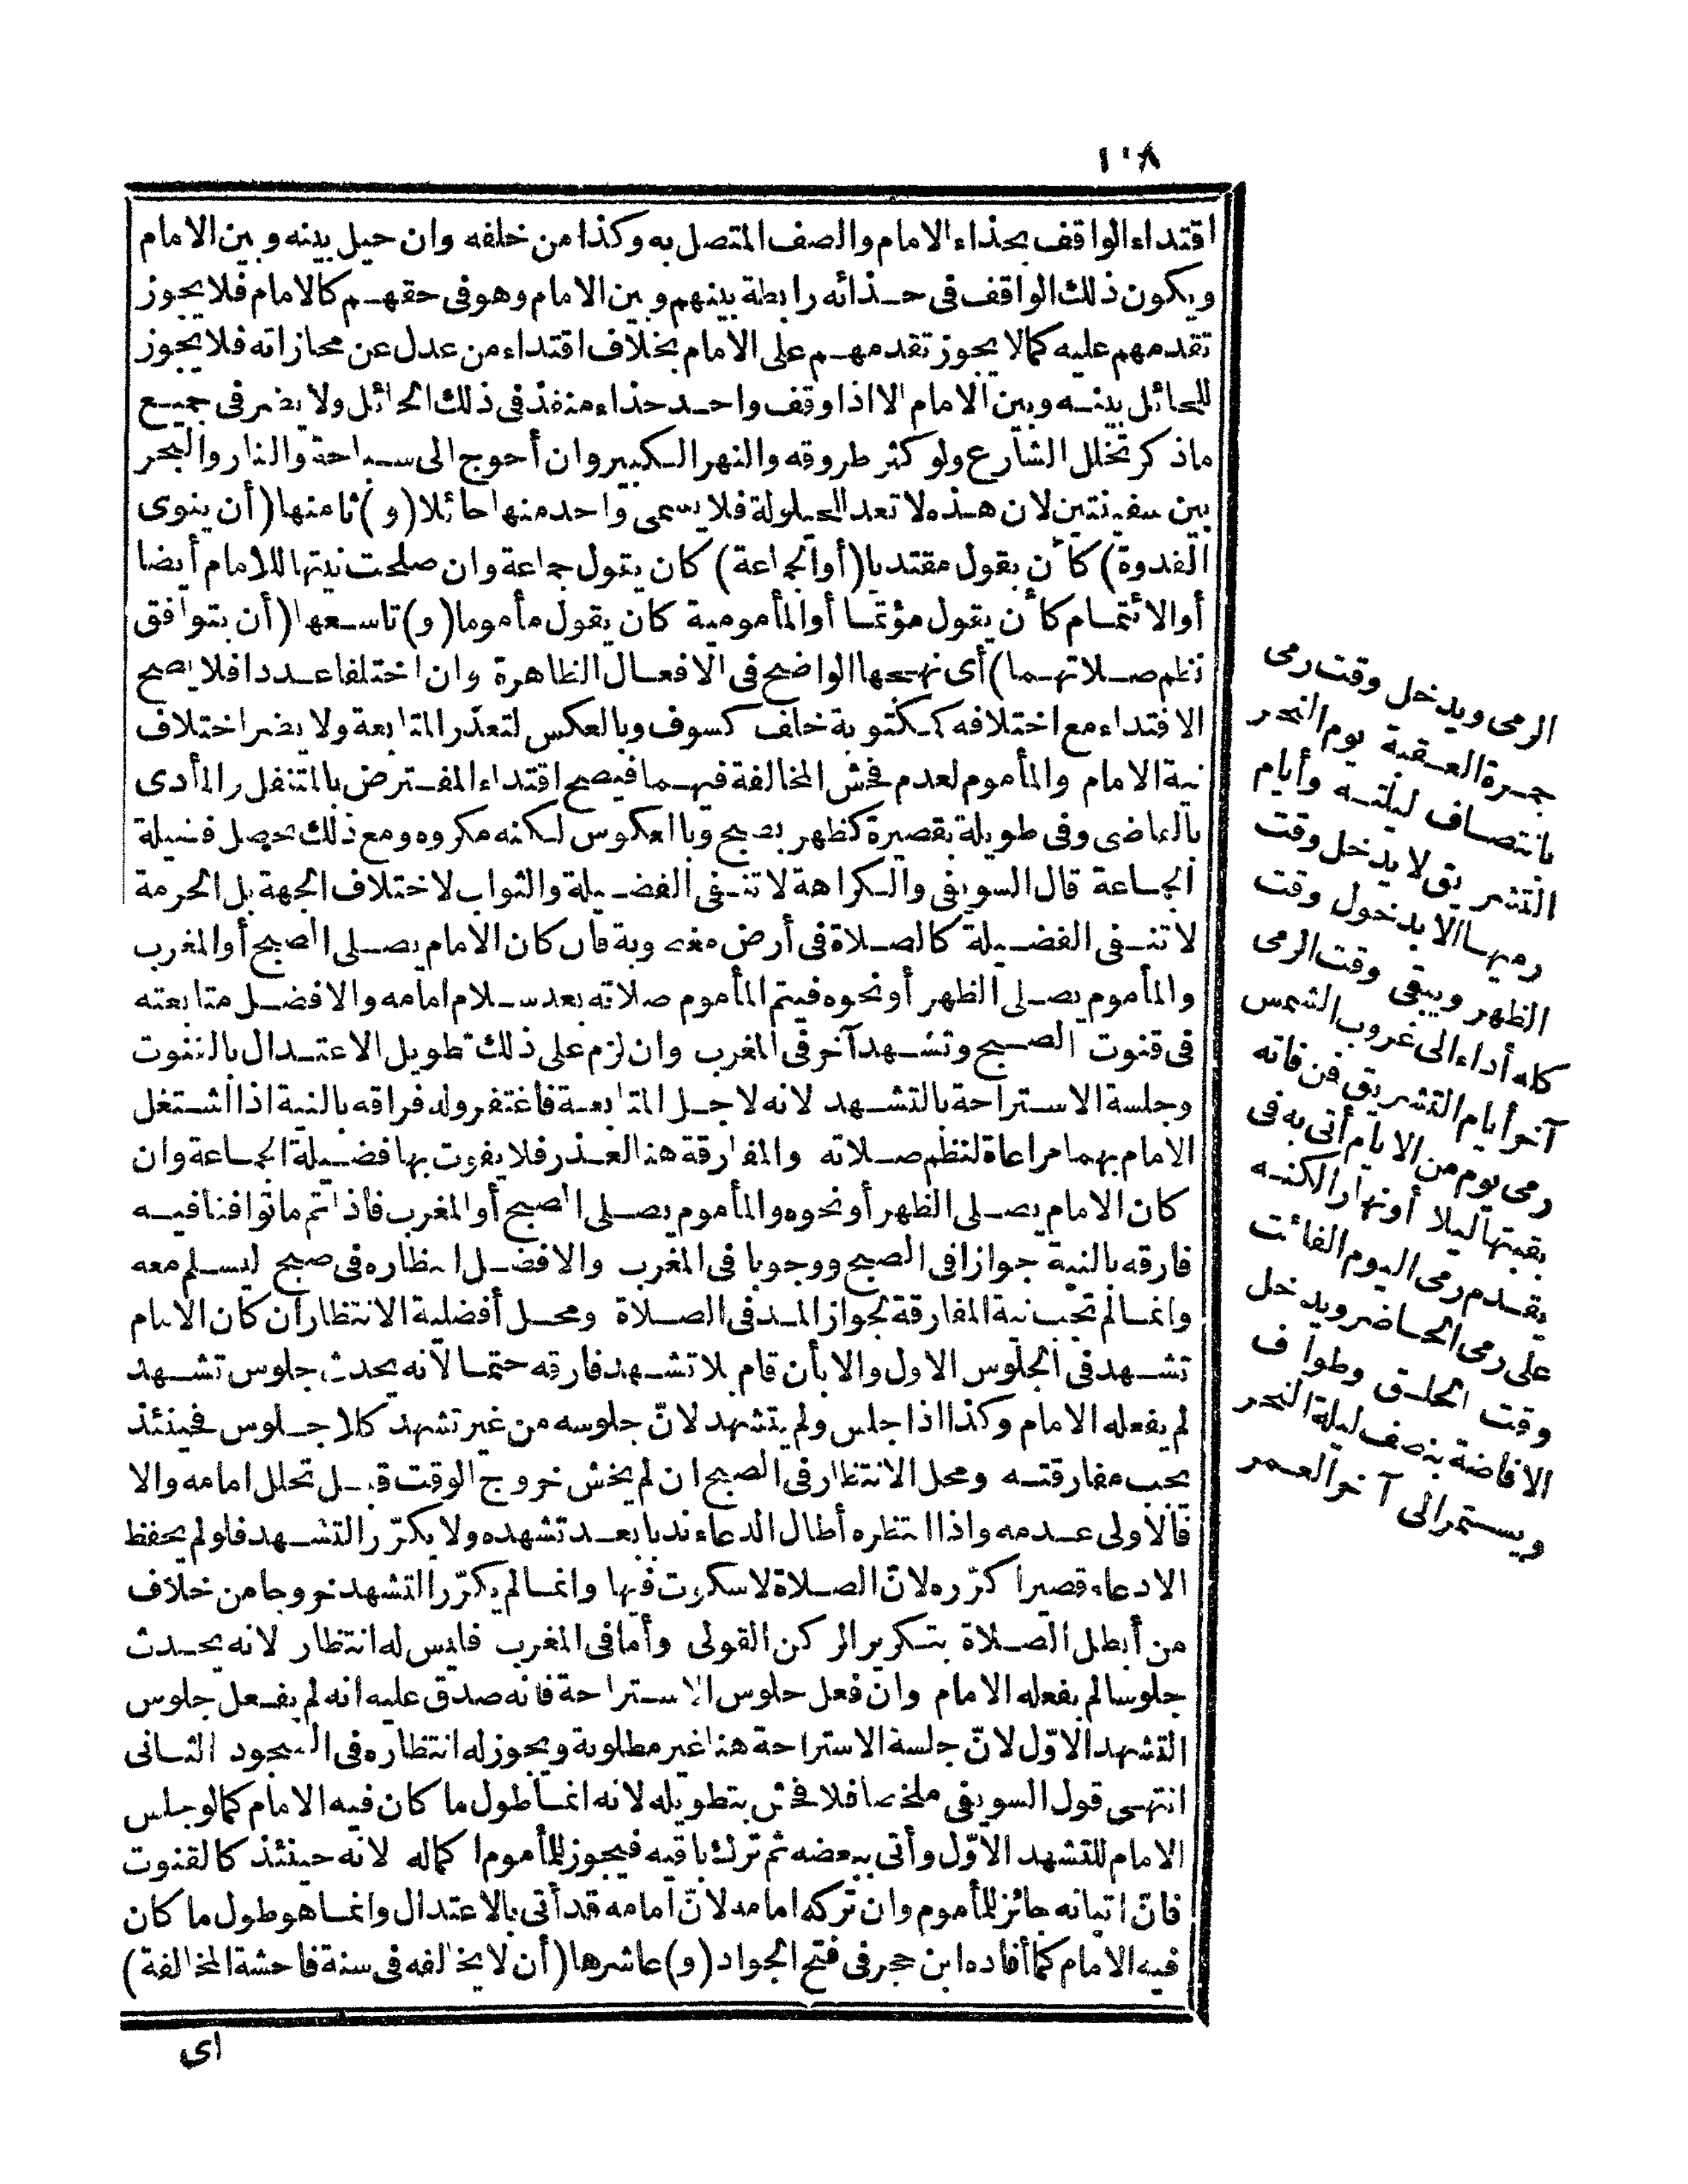 ١٠٨
اقتداء الواقف بحذاء الامام والصف المتصل به وكذا من خلفه وان حيل بينه وبين الامام
ويكون ذلك الواقف فى حذائه رابطة بينهم وبين الامام وهو فى حقهم كالامام فلا يجوز
تقدمهم عليه كما لا يجوز تقدمهم على الامام بخلاف اقتداء من عدل عن محازاته فلا يجوز
للحائل بينه وبين الامام الا اذا وقف واحد حذاء منفذ فى ذلك الحائل ولا يضر فى جميع
ما ذكر تخلل الشارع ولو كثر طروقه والنهر الكبير وان أحوج الى سباحة والنار والبحر
بين سفينتين لان هذه لا تعد للحيلولة فلا يسمى واحد منها حائلا (و) ثامنها (أن ينوى
القدوة) كأن يقول مقتديا (أو الجماعة) كان يقول جماعة وان صلحت نيتها للامام أيضا
أو الائتمام كأن يقول مؤتما أو المأمومية كان يقول مأموما (و) تاسعها (أن يتوافق
نظم صلاتهما) أى نهجها الواضح فى الافعال الظاهرة وان اختلفا عددا فلا يصح
الاقتداء مع اختلافه كمكتوبة خلف كسوف وبالعكس لتعذر المتابعة ولا يضر اختلاف
نية الامام والمأموم لعدم فحش المخالفة فيهما فيصح اقتداء المفترض بالمتنفل والمأدى
بالقاضى وفى طويلة بقصيرة كظهر بصبح وبالعكوس لكنه مكروه ومع ذلك تحصل فضيلة
الجماعة قال السويفى والكراهة لا تنفى الفضيلة والثواب لاختلاف الجهة بل الحرمة
لا تنفى الفضيلة كالصلاة فى أرض مغصوبة فان كان الامام يصلى الصبح أو المغرب
والمأموم يصلى الظهر أو نحوه فيتم المأموم صلاته بعد سلام امامه والافضل متابعته
فى قنوت الصبح وتشهد آخر فى المغرب وان لزم على ذلك تطويل الاعتدال بالقنوت
وجلسة الاستراحة بالتشهد لانه لاجل المتابعة فاغتفر وله فراقه بالنية اذا اشتغل
الامام بهما مراعاة لنظم صلاته والمفارقة هنا لعذر فلا يفوت بها فضيلة الجماعة وان
كان الامام يصلى الظهر أو نحوه والمأموم يصلى الصبح أو المغرب فاذا تم ما توافقا فيه
فارقه بالنية جوازا فى الصبح ووجوبا فى المغرب والافضل انتظاره فى صبح ليسلم معه
وانما لم تجب نية المفارقة لجواز المد فى الصلاة ومحل أفضلية الانتظار ان كان الامام
تشهد فى الجلوس الاول والا بأن قام بلا تشهد فارقه حتما لانه يحدث جلوس تشهد
لم يفعله الامام وكذا اذا جلس ولم يتشهد لانّ جلوسه من غير تشهد كلا جلوس فحينئذ
يجب مفارقته ومحل الانتظار فى الصبح ان لم يخش خروج الوقت قبل تحلل امامه والا
فالاولى عدمه واذا انتظره أطال الدعاء ندبا بعد تشهده ولا يكرّر التشهد فلو لم يحفظ
الا دعاء قصيرا كرّره لانّ الصلاة لا سكوت فيها وانما لم يكرّر التشهد خروجا من خلاف
من أبطل الصلاة بتكرير الركن القولى وأما فى المغرب فليس له انتظار لانه يحدث
جلوسا لم يفعله الامام وان فعل جلوس الاستراحة فانه صدق عليه انه لم يفعل جلوس
التشهد الاوّل لانّ جلسة الاستراحة هنا غير مطلوبة ويجوز له انتظاره فى السجود الثانى
انتهى قول السويفى ملخصا فلا فحش بتطويله لانه انما طول ما كان فيه الامام كما لو جلس
الامام للتشهد الاوّل وأتى ببعضه ثم ترك باقيه فيجوز للمأموم اكماله لانه حينئذ كالقنوت
فانّ اتيانه جائز للمأموم وان تركه امامه لانّ امامه قد أتى بالاعتدال وانما هو طول ما كان
فيه الامام كما أفاده ابن حجر فى فتح الجواد (و) عاشرها (أن لا يخالفه فى سنة فاحشة المخالفة)
اى
الرمى ويدخل وقت رمى
جمرة العقبة يوم النحر
بانتصاف ليلته وأيام
التشريق لا يدخل وقت
رميها الا بدخول وقت
الظهر ويبقى وقت الرمى
كله أداء الى غروب الشمس
آخر أيام التشريق فمن فاته
رمى يوم من الايام أتى به فى
بقيتها ليلا أو نهارا لكنه
يقدم رمى اليوم الفائت
على رمى الحاضر ويدخل
وقت الحلق وطواف
الافاضة بنصف ليلة النحر
ويستمر الى آخر العمر